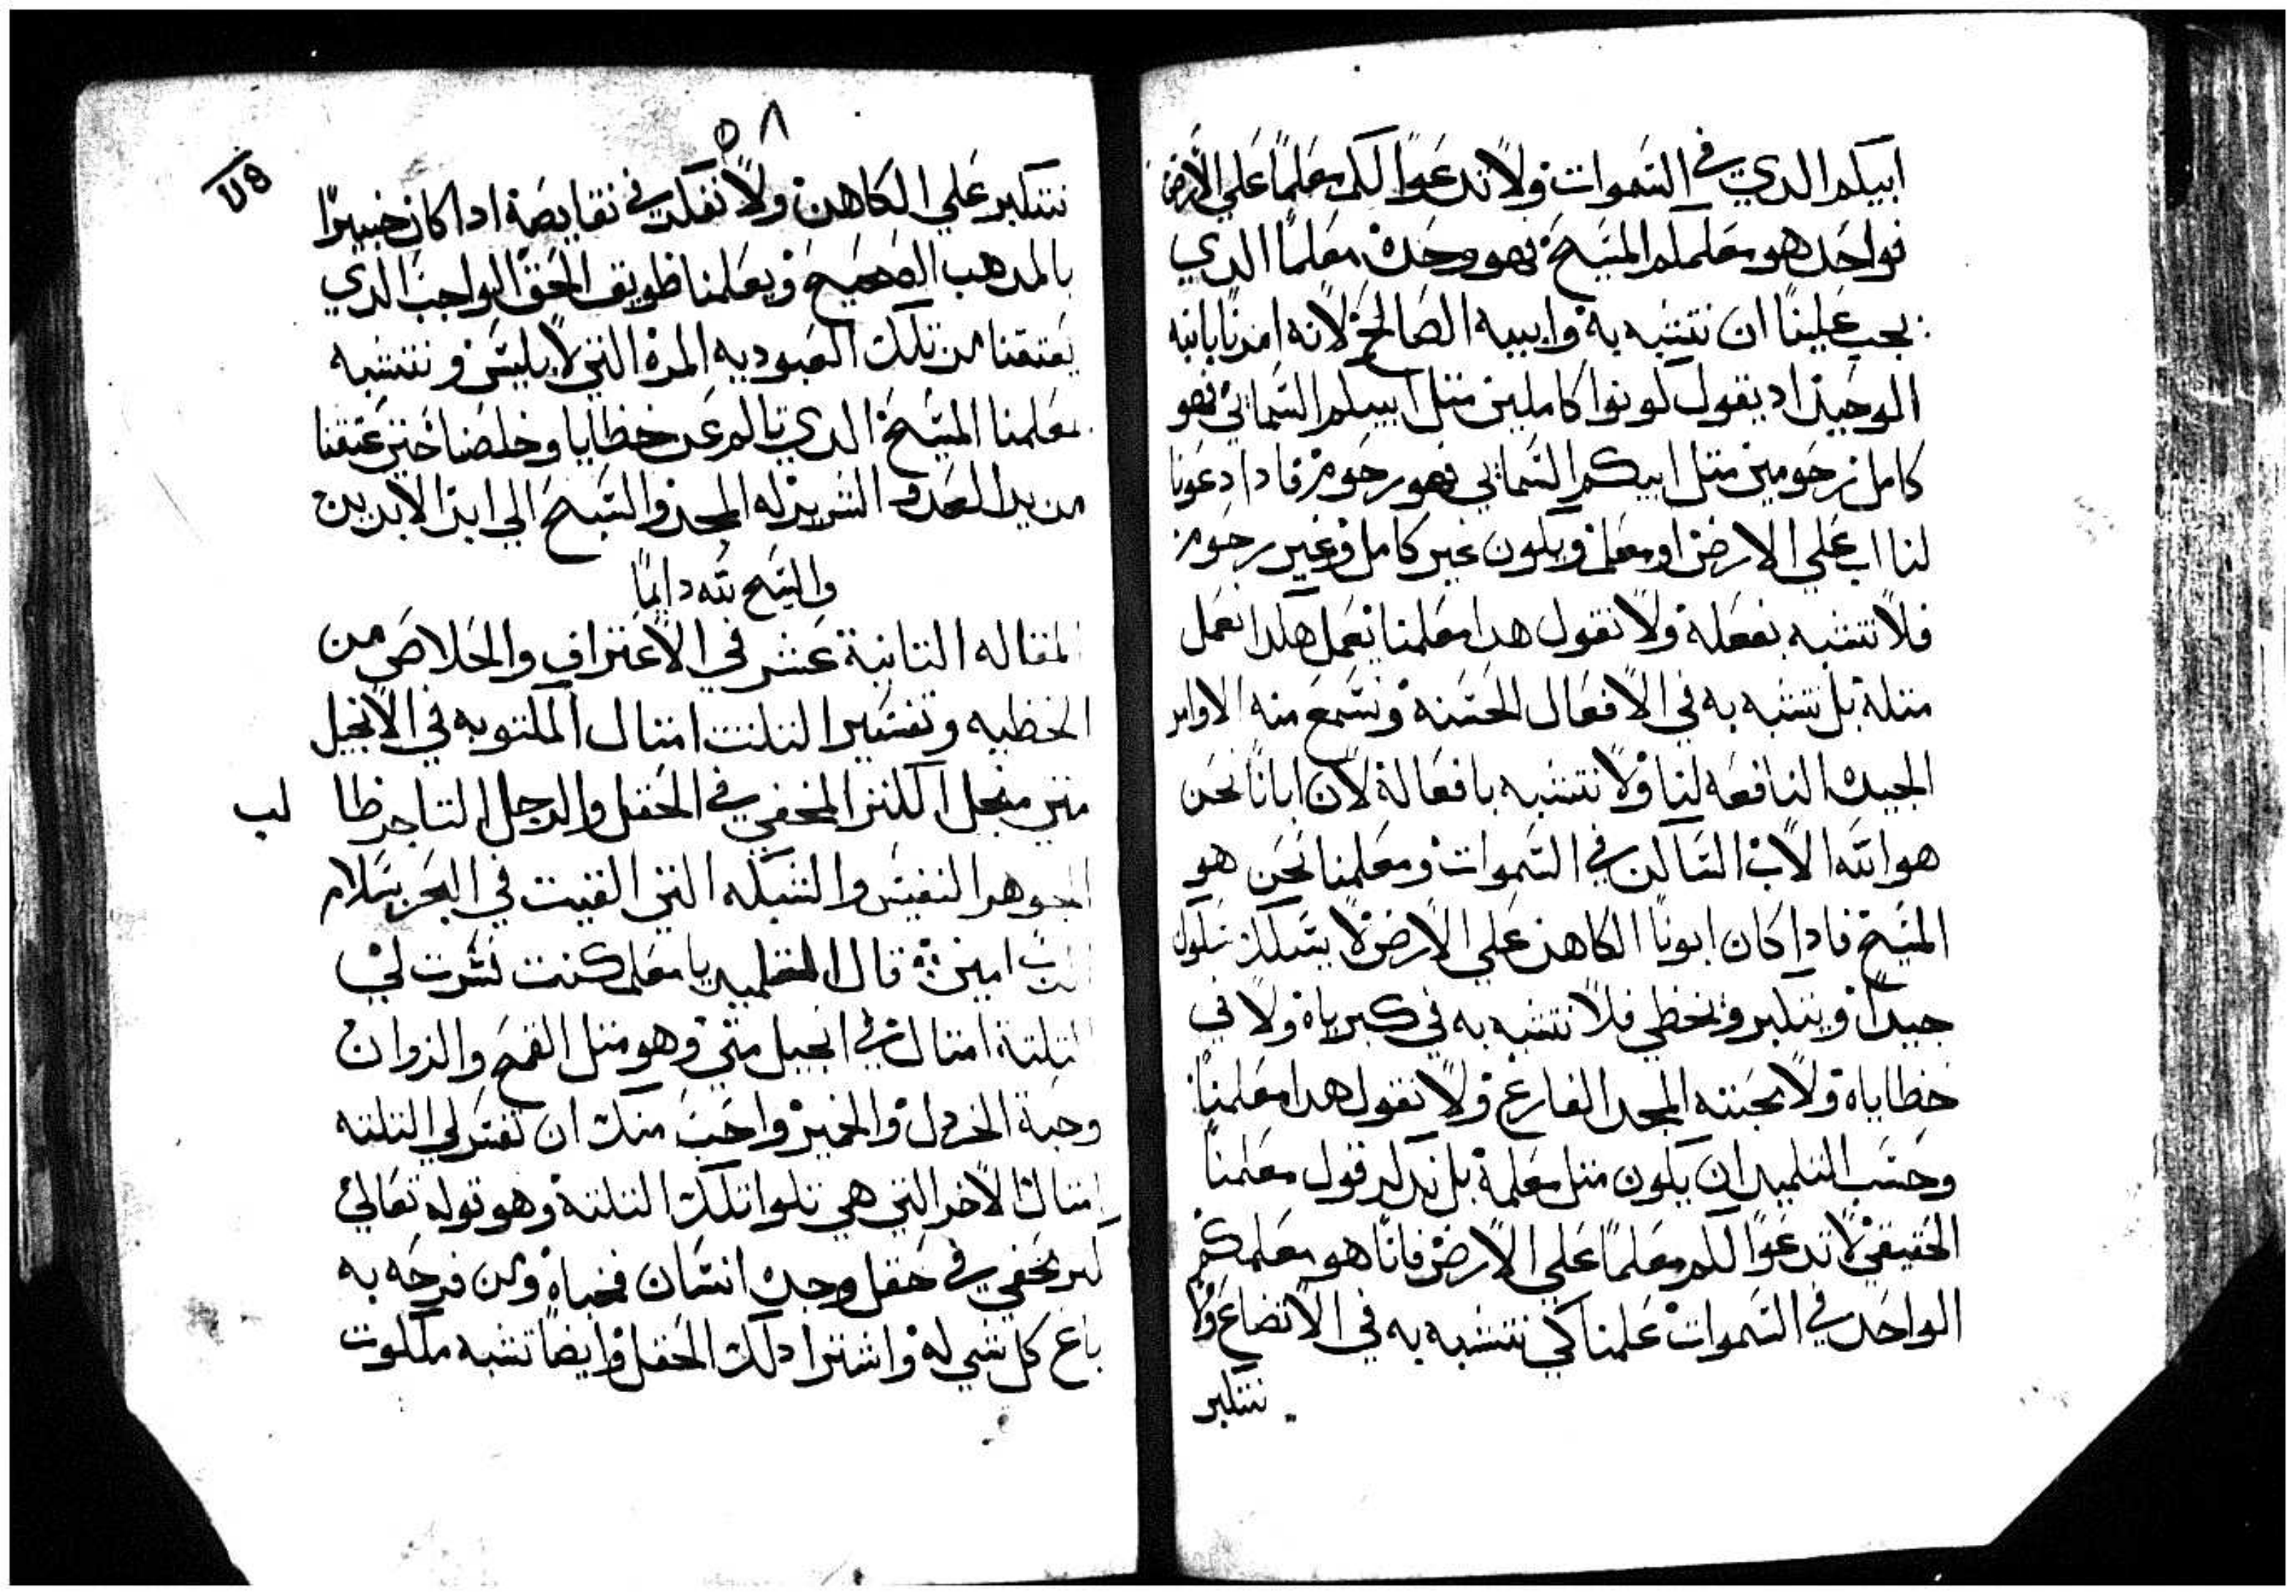 ابيكم الدي في السموات ولا تدعوا لكم معلما علي الارض
فواحد هو معلمكم المسيح فهو وحده معلما الدي
يجب علينا ان نتشبه به وابيه الصالح لانه امرنا بابنه
الوحيد اد يقول كونوا كاملين متل ابيكم السماني فهو
كامل رحومين متل ابيكم السماني فهو رحوم فادا دعونا
لنا اب علي الارض او معلم ويكون غير كامل وغير رحوم
فلا نتشبه بفعله ولا نقول هدا معلمنا يعمل هكدا نعمل
متله بل نتشبه به في الافعال الحسنه ونسمع منه الاوامر
الجيده النافعه لنا ولا نتشبه بافعاله لان ابانا نحن
هو الله الاب الساكن في السموات ومعلمنا نحن هو
المسيح فادا كان ابونا الكاهن علي الارض لا يسلك سلوك
جيدا ويتكبر ويخطي فلا نتشبه به في كبرياه ولا في
خطاياه ولا محبته المجد الفارغ ولا نقول هدا معلمنا
وحسب التلميد ان يكون متل معلمه بل ندكر قول معلمنا
الحقيقي لا تدعوا لكم معلما علي الارض فانا هو معلمكم
الواحد في السموات علمنا كي نتشبه به في الاتضاع ولا
نتكبر
٥٨
نتكبر علي الكاهن ولا نفكر في نقايصه ادا كان خبيرا
بالمدهب الصحيح ويعلمنا طريق الحق الواجب الدي
يعتقنا من تلك العبوديه المره التي لابليس ونتشبه
بمعلمنا المسيح الدي تالم عن خطايا وخلصنا حين عتقنا
من يد العدو الشرير له المجد والتسبيح الي ابد الابدين
والسبح لله دايما
المقاله التانية عشر في الاعتراف والخلاص من
الخطيه وتفسير التلت امتال المكتوبه في الانجيل
متي منجل الكنز المخفي في الحقل والرجل التاجر طا لب
الجوهر النفيس والشبكه التي القيت في البحر بسلام
الرب امين قال التلميد يا معلم كنت فسرت لي
التلتة امتال في انجيل متي وهو متل القمح والزوان
وحبة الخردل والخمير واحب منك ان تفسر لي التلته
امتال الاخر التي هي تلوا تلك التلته وهو قوله تعالي
كنز مخفي في حقل وجده انسان فخباه ومن فرحه به
باع كل شي له واشترا دلك الحقل وايضا تشبه ملكوت